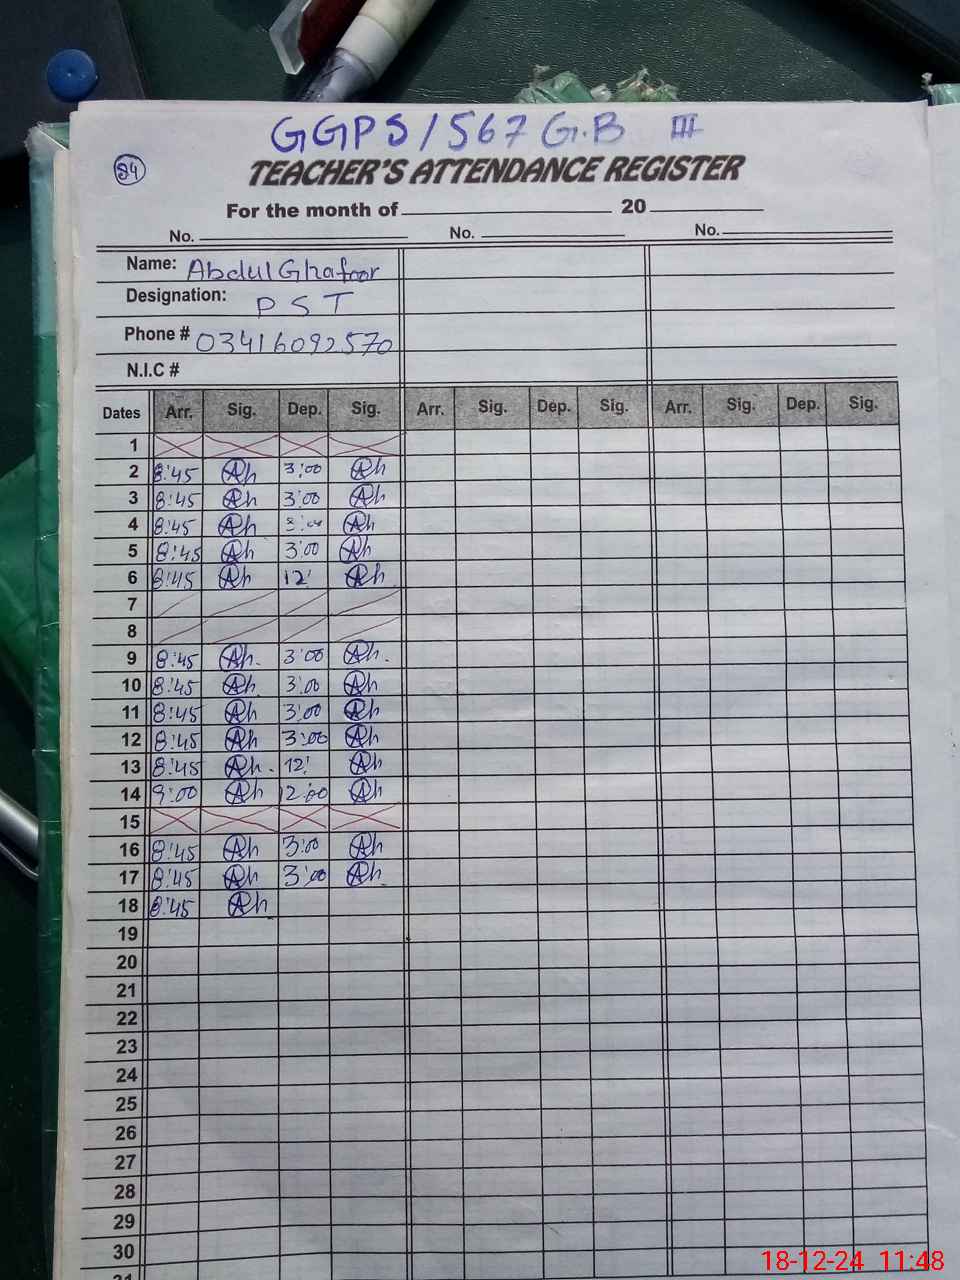 GGPS/567 G.B III
84
TEACHER'S ATTENDANCE REGISTER
For the month of 20
No. No. No.
Name: Abdul Ghafoor
Designation: P S T
Phone # 03416092570
N.I.C #
Dates Arr. Sig. Dep. Sig. Arr. Sig. Dep. Sig. Arr. Sig. Dep. Sig.
1
2 8:45 Ah 3:00 Ah
3 8:45 Ah 3:00 Ah
4 8:45 Ah 3:00 Ah
5 8:45 Ah 3:00 Ah
6 8:45 Ah 12: Ah
7
8
9 8:45 Ah. 3:00 Ah.
10 8:45 Ah 3:00 Ah
11 8:45 Ah 3:00 Ah
12 8:45 Ah 3:00 Ah
13 8:45 Ah. 12: Ah
14 9:00 Ah 12:00 Ah
15
16 8:45 Ah 3:00 Ah
17 8:45 Ah 3:00 Ah
18 8:45 Ah
19
20
21
22
23
24
25
26
27
28
29
30
31
18-12-24 11:48